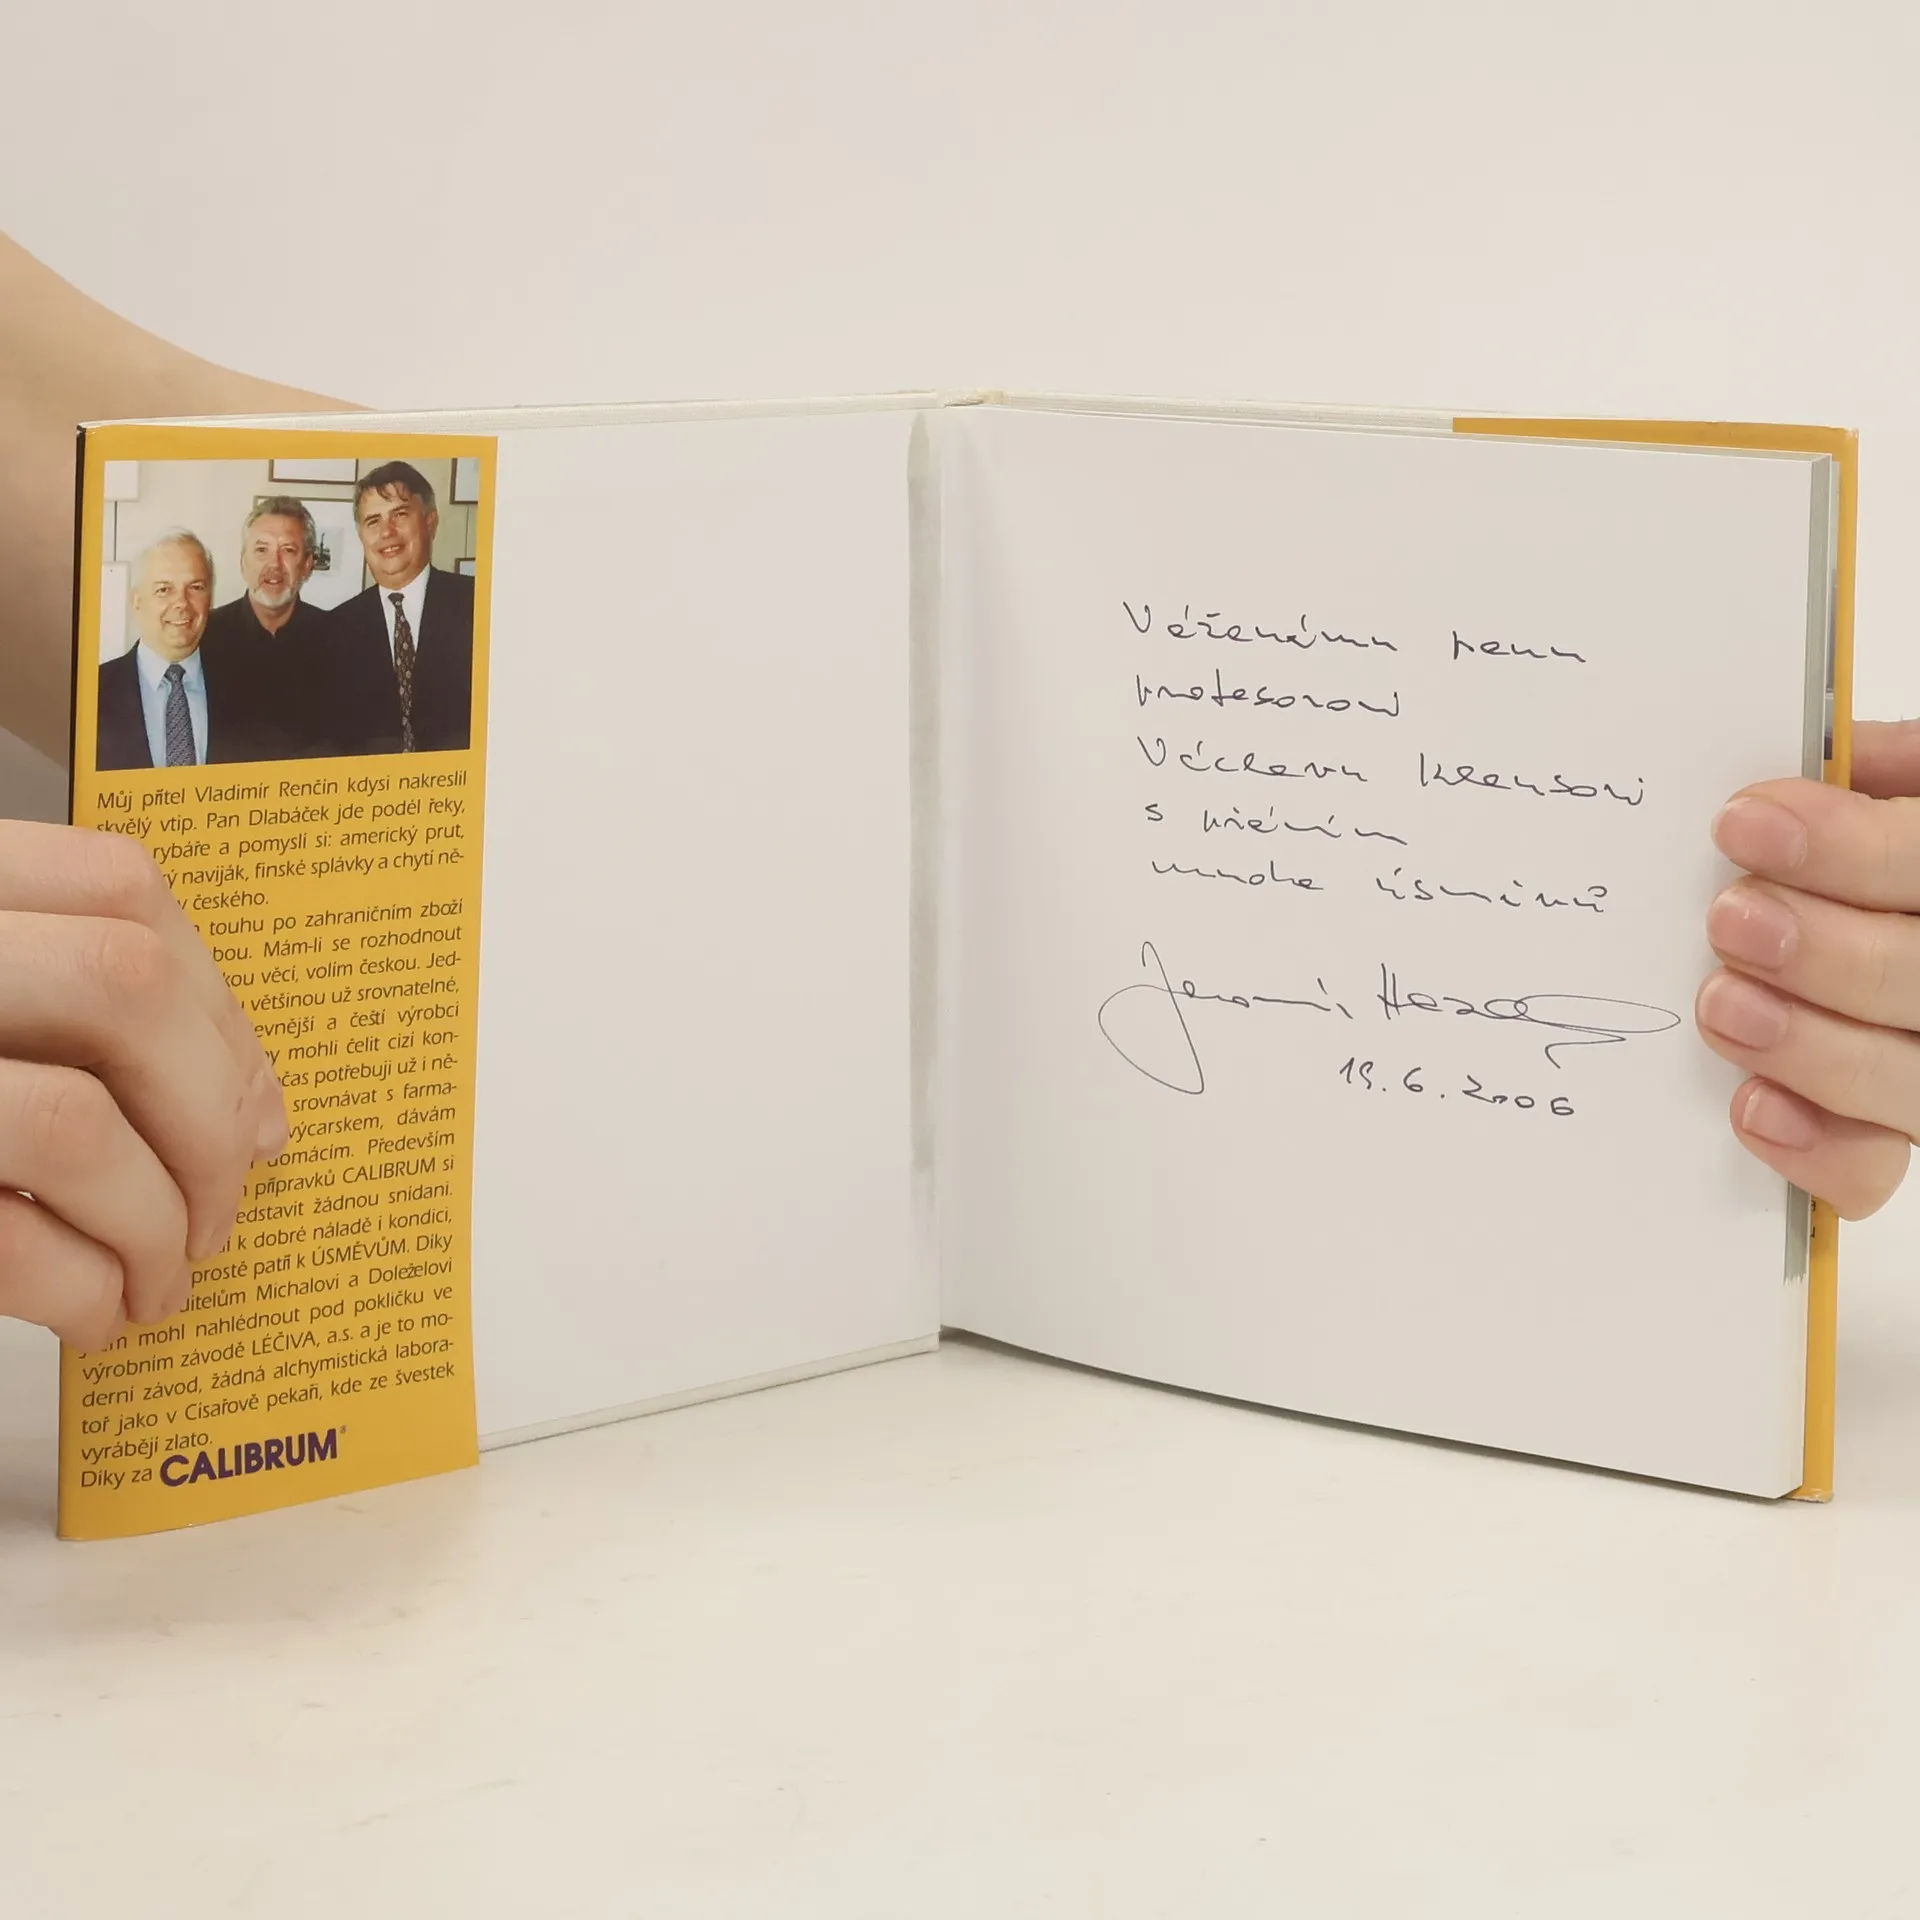 Můj přítel Vladimír Renčín kdysi nakreslil
skvělý vtip. Pan Dlabáček jde podél řeky,
rybáře a pomyslí si: americký prut,
ý naviják, finské splávky a chytí ně-
českého.
touhu po zahraničním zboží
bou. Mám-li se rozhodnout
kou věcí, volím českou. Jed-
většinou už srovnatelné,
evnější a čeští výrobci
y mohli čelit cizí kon-
čas potřebuji už i ně-
srovnávat s farma-
výcarskem, dávám
domácím. Především
přípravků CALIBRUM si
edstavit žádnou snídani.
k dobré náladě i kondici,
prostě patří k ÚSMĚVŮM. Díky
ditelům Michalovi a Doleželovi
m mohl nahlédnout pod pokličku ve
výrobním závodě LÉČIVA, a.s. a je to mo-
derní závod, žádná alchymistická labora-
toř jako v Císařově pekaři, kde ze švestek
vyrábějí zlato.
Díky za CALIBRUM®
Váženému panu
profesorovi
Václavu Klausovi
s přáním
mnoha úsměvů
Jaromír
19.6.2006